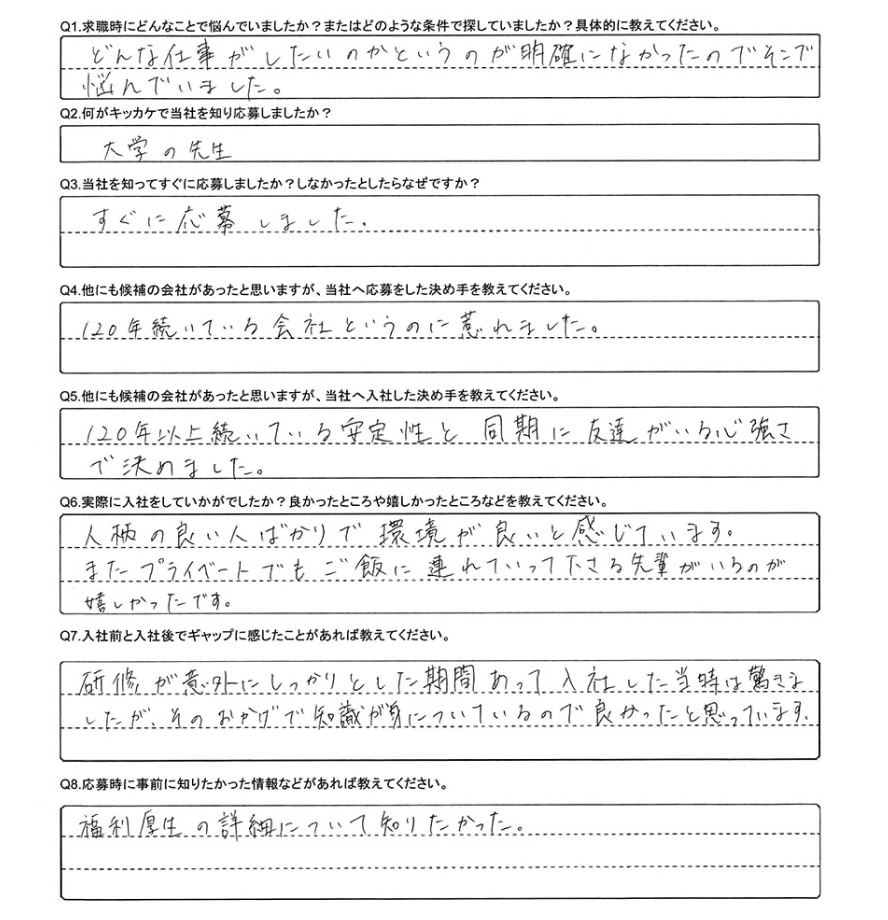 Q1.求職時にどんなことで悩んでいましたか？またはどのような条件で探していましたか？具体的に教えてください。
どんな仕事がしたいのかというのが明確になかったのでそこで
悩んでいました。
Q2.何がキッカケで当社を知り応募しましたか？
大学の先生
Q3.当社を知ってすぐに応募しましたか？しなかったとしたらなぜですか？
すぐに応募しました。
Q4.他にも候補の会社があったと思いますが、当社へ応募をした決め手を教えてください。
120年続いている会社というのに惹れました。
Q5.他にも候補の会社があったと思いますが、当社へ入社した決め手を教えてください。
120年以上続いている安定性と同期に友達がいる心強さ
で決めました。
Q6.実際に入社をしていかがでしたか？良かったところや嬉しかったところなどを教えてください。
人柄の良い人ばかりで環境が良いと感じています。
またプライベートでもご飯に連れていって下さる先輩がいるのが
嬉しかったです。
Q7.入社前と入社後でギャップに感じたことがあれば教えてください。
研修が意外にしっかりとした期間あって入社した当時は驚きま
したが、そのおかげで知識が身についているので良かったと思っています。
Q8.応募時に事前に知りたかった情報などがあれば教えてください。
福利厚生の詳細について知りたかった。